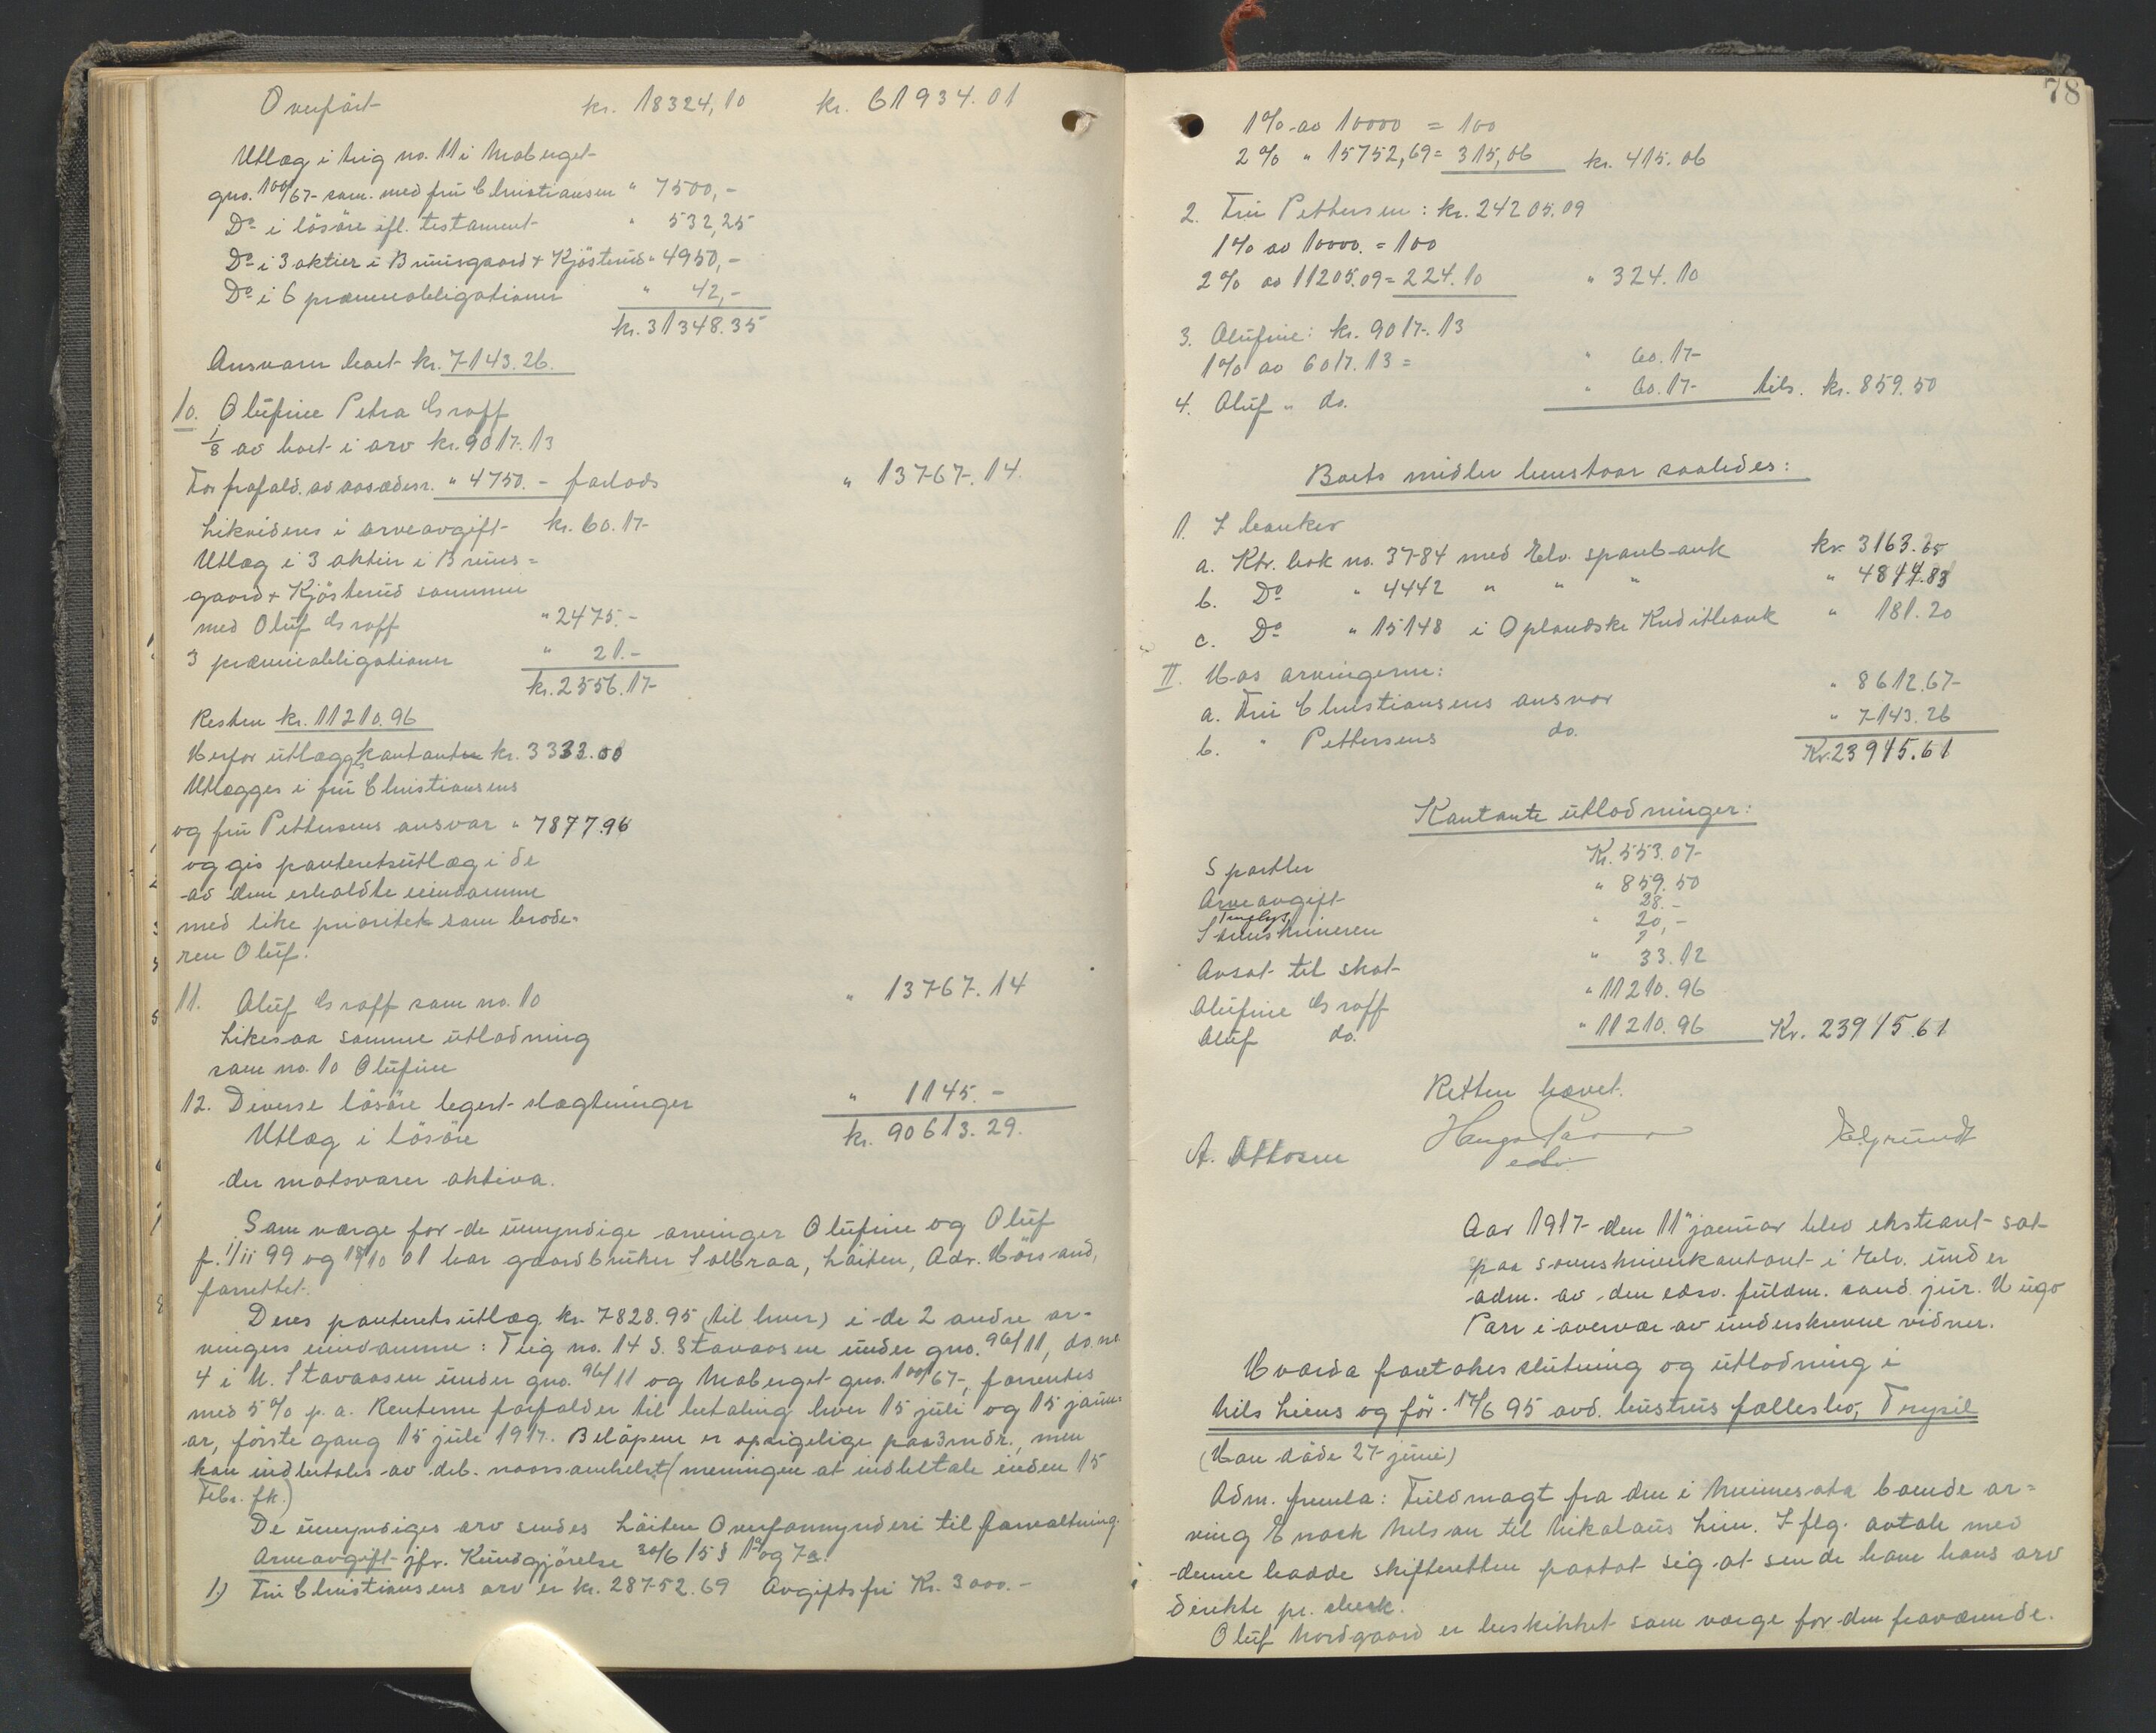 Overfört kr. 18324,10 kr. 61934.01
Utlæg i leig no. 11 i Moberget
gno. 100/67 sam. med fru Christiansen " 7500,-
Do i lösöre efl. testament " 532,25
Do i 3 aktier i Bruusgaard & Kjösterud " 4950,-
Do i 6 præmieobligationer " 42,-
kr. 31348.35
Ansvarer boet kr. 7143.26.
10. Olufine Petra Graff
1/8 av boet i arv kr. 9017.13
For frafald. av aasædesr. " 4750.- farlods " 13767.14.
Likvideres i arveavgift kr. 60.17
Utlæg i 3 aktier i Bruus=
gaard & Kjösterud sammen
med Oluf Graff " 2475.-
3 præmieobligationer " 21.-
kr. 2556.17
Resten kr. 11210.96
Herfor utlægges kontanter kr. 3333.00
Utlægges i fru Christiansens
og fru Pettersens ansvar " 7877.96
og gis panteretsutlæg i de
av dem erholdte eiendomme
med like prioritet som brode=
ren Oluf.
11. Oluf Graff som no. 10 " 13767.14
Likesaa samme utlodning
som no. 10 Olufine
12. Diverse lösöre legert slægtninger " 1145.-
Utlæg i lösöre kr. 90613.29.
der motsvarer aktiva.
Som værge for de umyndige arvinger Olufine og Oluf
f. 1/11 99 og 18/10 01 har gaardbruker Solbraa, Löiten, Adr. Hörsand,
forrettet.
Deres panteretsutlæg kr. 7828.95 (til hver) i de 2 andre ar-
vingers eiendomme: Tlig no. 14 S. Stavaasen under gno. 96/11, do. no.
4 i N. Stavaasen under gno. 96/11 og Moberget gno. 100/67, forrentes
med 5% p. a. Renterne forfalder til betaling hver 15 juli og 15 janu=
ar, förste gang 15 juli 1917. Belöpene er opsigelige paa 3 mdr., men
kan indbetales av deb. naarsomhelst (meningen at indbetale inden 15
Febr. fk.)
De umyndiges arv sendes Löiten Overformynderi til forvaltning.
Arveavgift jfr. Kundgjörelse 30/6 15 § 1 og 7 a.
1.) Fru Christiansens arv er kr. 28752.69 Avgiftsfri Kr. 3000.-
78
1% av 10000 = 100
2% " 15752,69 = 315,06 kr. 415.06
2. Fru Pettersen: kr. 24205.09
1% av 10000. = 100
2% av 11205.09 = 224.10 " 324.10
3. Olufine: kr. 9017.13
1% av 6017.13 = " 60.17
4. Oluf " do. " 60.17 tils. kr. 859.50
Boets midler henstaar saaledes:
1. I banker
a. Ktr. bok no. 3784 med Elv. sparebank kr. 3163.65
b. Do " 4442 " " " " 4844.83
c. Do " 15148 i Oplandske Kreditbank " 181.20
II. Hos arvingerne:
a. Fru Christiansens ansvar " 8612.67
b. " Pettersens do. " 7143.26
Kr. 23945.61
Kontante utlodninger:
Sportler Kr. 553.07
Arveavgift " 859.50
Tinglys. 28.-
Sorenskriveren " 20,-
Avsat til skat " 33.12
Olufine Graff " 11210.96
Oluf do. " 11210.96 Kr. 23915.61
Retten hævet.
A. Ottosen Hugo Parr
edsv. E. Grundt
Aar 1917 den 11 januar blev ekstraret sat
paa sorenskriverkontoret i Elv. under
adm. av den edsv. fuldm. cand. jur. Hugo
Parr i overvær av underskrevne vidner.
Hvorda foretokes slutning og utlodning i
Nils Liens og för 17/6 95 avd. hustrus fællesbo, Trysil
(Han döde 27 juni)
Adm. fremla: Fuldmagt fra den i Minnesota boende ar=
ving Enock Nelson til Nikolaus Lien. I flg. avtale med
denne hadde skifteretten paatat sig at sende ham hans arv
direkte pr. check.
Oluf Nordgaard er beskikket som værge for den fraværende.